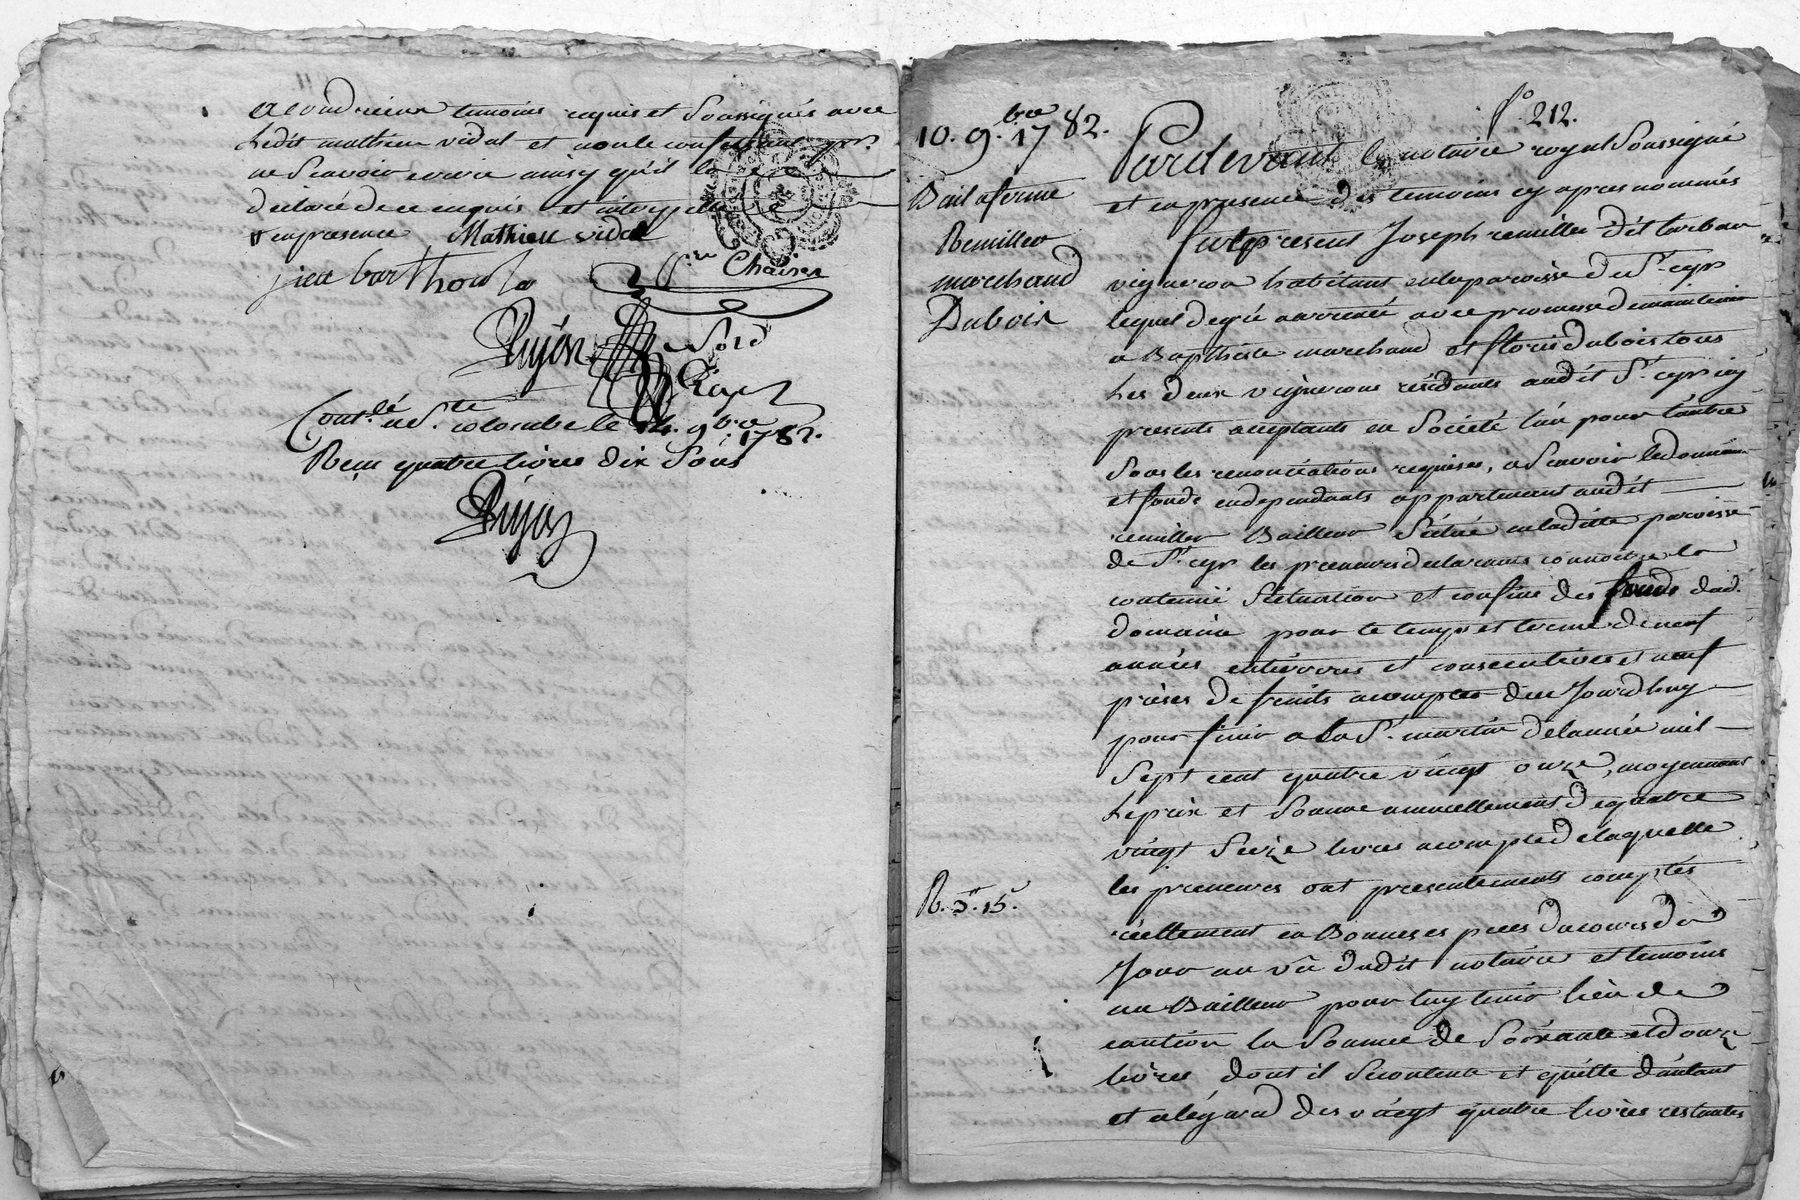 temoins requis et Soussignés avec
Ledit mathieu vidal et non le confessant pnt.
ne Scavoir ecrire ainsy qu'il la
déclaré de ce enquis et interpellé
en presence Mathieu vidal
jean barthoulo
Chaisen
Pujon
Cont.lé a S.te colombe le 14. 9.bre 1782.
Reçu quatre livres dix Sous
Pujon
f.o 212.
10. 9.bre 1782.
Bail a ferme
Remiller
marchand
Dubois
R. 3.# 15.s
Pardevant le notaire royal Soussigné
et en presence des temoins cy apres nommés
fut present Joseph remiller dit
vigneron habitant en la paroisse de S.t cyr
lequel de gré a arrenté avec promesse de maintenir
a Baptiste marchand et floris dubois tous
Les deux vignerons résidants audit S.t cyr icy
presents acceptants en Société l'un pour l'autre
Sous les renonciations requises, a Scavoir le domaine
et fonds en dependants appartenant audit
remiller Bailleur Sitúé en ladite paroisse
de S.t cyr les preneurs declarants connoitre la
contenue Situation et confins des fonds dud.
domaine pour le temps et terme de neuf
années entieres et consecutives et neuf
prises de fruits a compter de ce Jourdhuy
pour finir a la S.t martin de l'année mil
Sept cent quatre vingt onze, moyennant
Le prix et Somme annuellement de quatre
vingt Seize livres a compte de laquelle
les preneurs ont presentement comptés
réellement en Bonnes especes du cours de
Jour au vû dudit notaire et temoins
au Bailleur pour luy tenir lieu de
caution la Somme de Soixante et douze
livres dont il Se contente et quitte d'autant
et a légard des vingt quatre livres restantes